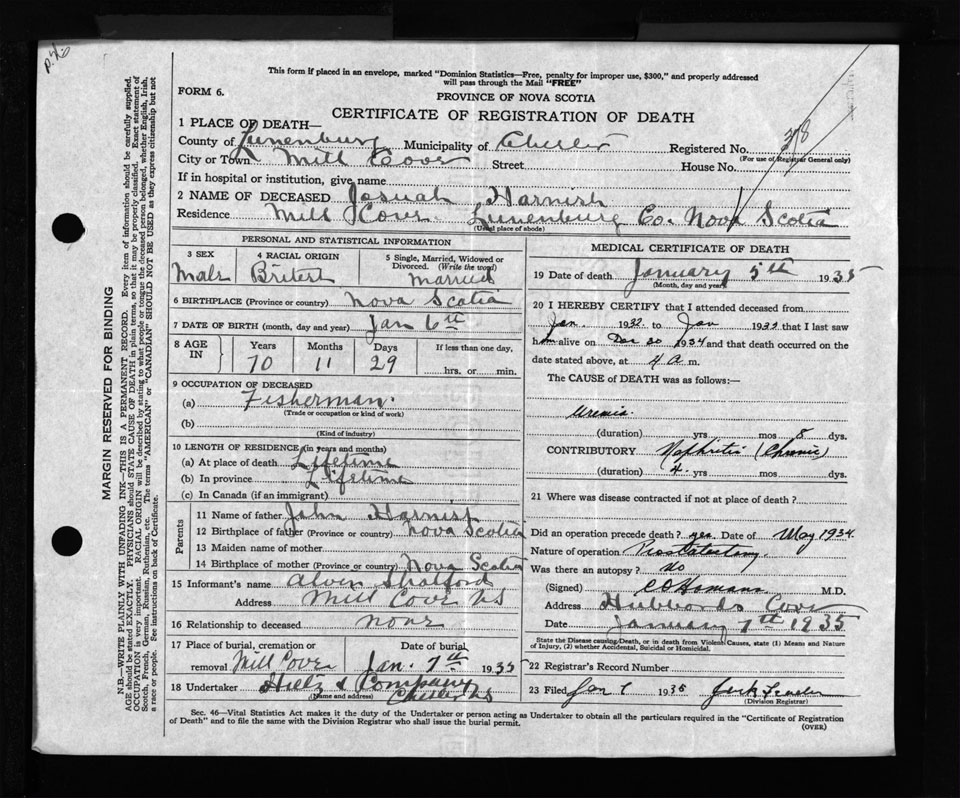 This form if placed in an envelope, marked "Dominion Statistics—Free, penalty for improper use, $300," and properly addressed
will pass through the Mail "FREE"
FORM 6.
PROVINCE OF NOVA SCOTIA
CERTIFICATE OF REGISTRATION OF DEATH
1 PLACE OF DEATH—
County of Lunenburg Municipality of Chester Registered No. 38
(For use of Registrar General only)
City or Town Mill Cove Street House No.
If in hospital or institution, give name
2 NAME OF DECEASED Josuah Harnish
Residence Mill Cove Lunenburg Co. Nova Scotia
(Usual place of abode)
PERSONAL AND STATISTICAL INFORMATION
3 SEX Male
4 RACIAL ORIGIN
5 Single, Married, Widowed or Divorced. (Write the word) Married
6 BIRTHPLACE (Province or country) Nova Scotia
7 DATE OF BIRTH (month, day and year) Jan 6th
8 AGE IN Years Months Days If less than one day,
70 11 29 hrs. or min.
9 OCCUPATION OF DECEASED
(a) Fisherman.
(Trade or occupation or kind of work)
(b)
(Kind of industry)
10 LENGTH OF RESIDENCE (in years and months)
(a) At place of death Lifetime
(b) In province Lifetime
(c) In Canada (if an immigrant)
Parents
11 Name of father John Harnish
12 Birthplace of father (Province or country) Nova Scotia
13 Maiden name of mother
14 Birthplace of mother (Province or country) Nova Scotia
15 Informant's name Alvin
Address Mill Cove NS
16 Relationship to deceased none
17 Place of burial, cremation or removal Mill Cove
Date of burial, Jan. 7th 1935
18 Undertaker Hiltz & Company
(Name and address) Chester NS
MEDICAL CERTIFICATE OF DEATH
19 Date of death January 5th 1935
(Month, day and year)
20 I HEREBY CERTIFY that I attended deceased from
Jan. 1932 to Jan 193 that I last saw
him alive on Dec 30 1934 and that death occurred on the
date stated above, at 4 a m.
The CAUSE OF DEATH was as follows:—
Uremia.
(duration) yrs mos 8 dys.
CONTRIBUTORY Nephritis (Chronic)
(duration) 4 yrs mos dys.
21 Where was disease contracted if not at place of death?
Did an operation precede death? yes Date of May 1934
Nature of operation Prostatectomy.
Was there an autopsy? no
(Signed) M.D.
Address Hubbards Cove
Date January 7th 1935
State the Disease causing Death, or in death from Violent Causes, state (1) Means and Nature
of Injury, (2) whether Accidental, Suicidal or Homicidal.
22 Registrar's Record Number
23 Filed Jan 7 1935
(Division Registrar)
Sec. 46—Vital Statistics Act makes it the duty of the Undertaker or person acting as Undertaker to obtain all the particulars required in the "Certificate of Registration
of Death" and to file the same with the Division Registrar who shall issue the burial permit.
(OVER)
MARGIN RESERVED FOR BINDING
N.B.—WRITE PLAINLY WITH UNFADING INK—THIS IS A PERMANENT RECORD. Every item of information should be carefully supplied.
AGE should be stated EXACTLY. PHYSICIANS should STATE CAUSE OF DEATH in plain terms, so that it may be properly classified. Exact statement of
OCCUPATION is very important. RACIAL ORIGIN will be described by stating to what people or tongue the deceased person belonged, whether English, Irish,
Scotch, French, German, Russian, Ruthenian, etc. The terms "AMERICAN" or "CANADIAN" SHOULD NOT BE USED as they express citizenship but not
a race or people. See instructions on back of Certificate.